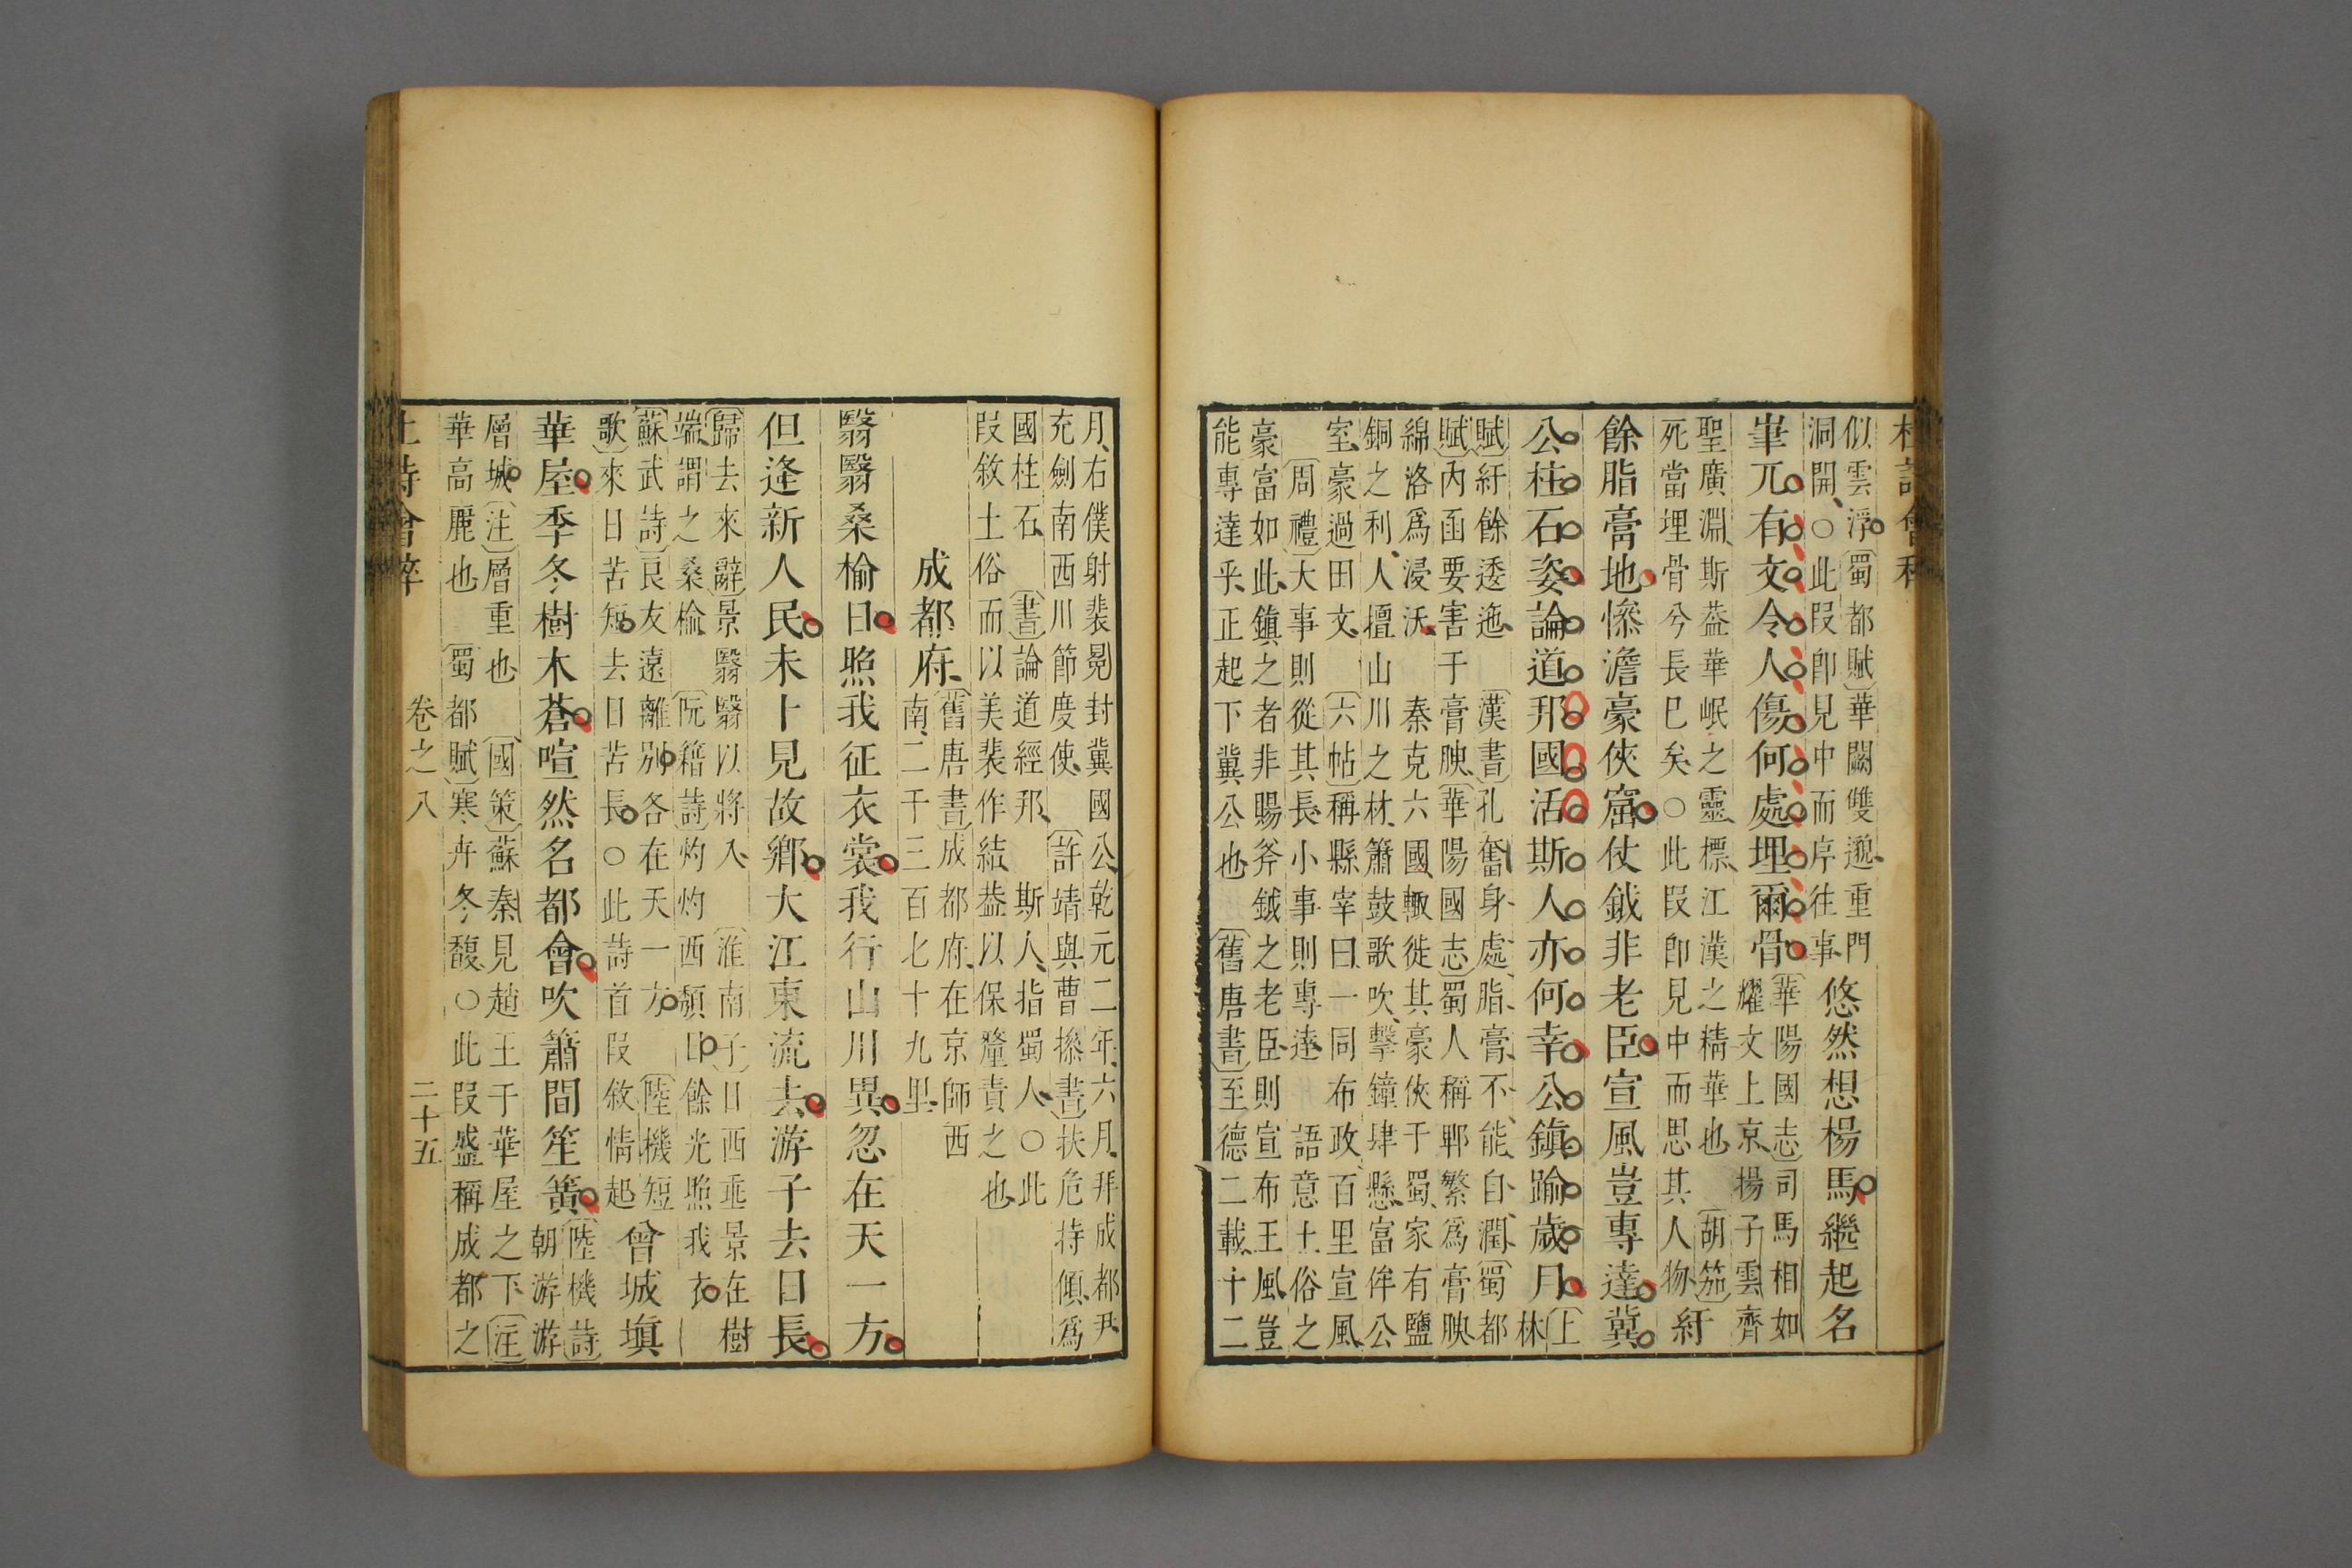 杜詩會粹
似雲浮〔蜀都賦〕華闕雙邈重門
洞開、○此段卽見中而序往事
悠然想楊馬繼起名
崒兀有文令人傷何處埋爾骨
〔華陽國志〕司馬相如
耀文上京、揚子雲齊
聖廣淵斯葢華岷之靈標、江漢之精華也 〔胡笳〕
死當埋骨兮長已矣、○此段卽見中而思其人物
紆
餘脂膏地慘澹豪俠窟仗鉞非老臣宣風豈專達冀
公柱石姿論道邦國活斯人亦何幸公鎮踰歲月
〔上
林
賦〕紆餘逶迤、 〔漢書〕孔奮身處脂膏、不能自潤、〔蜀都
賦〕內函要害于膏腴、〔華陽國志〕蜀人稱郫繁爲膏腴
綿洛爲浸沃、 秦克六國輙徙其豪俠于蜀、家有鹽
銅之利、人擅山川之材、簫鼓歌吹、擊鐘肆懸、富侔公
室、豪過田文、 〔六帖〕稱縣宰曰、一同布政百里宣風、
〔周禮〕大事則從其長、小事則專達、 語意土俗之
豪富如此、鎮之者非賜斧鉞之老臣、則宣布王風、豈
能專達乎正起下冀公也 〔舊唐書〕至德二載、十二
月、右僕射裴冕封冀國公、乾元二年、六月、拜成都尹、
充劍南西川節度使、 〔許靖與曹操書〕扶危持傾、爲
國柱石、 〔書〕論道經邦、 斯人、指蜀人、○此
段敘土俗而以美裴作結葢以保釐責之也
成都府、
〔舊唐書〕成都府、在京師西
南、二千三百七十九里、
翳翳桑榆日照我征衣裳我行山川異忽在天一方
但逢新人民未卜見故鄉大江東流去游子去日長
〔歸去來辭〕景翳翳以將入 〔淮南子〕日西垂景在樹
端、謂之桑榆、 〔阮籍詩〕灼灼西頹日餘光照我衣
〔蘇武詩〕良友遠離別各在天一方 〔陸機短
歌〕來日苦短去日苦長○此詩首段敘情起
曾城塡
華屋季冬樹木蒼喧然名都會吹簫間笙簧
〔陸機詩〕
朝游游
層城〔注〕層重也 〔國策〕蘇秦見趙王于華屋之下〔注〕
華高麗也、 〔蜀都賦〕寒卉冬馥、○此段盛稱成都之
杜詩會粹 卷之八 二十五